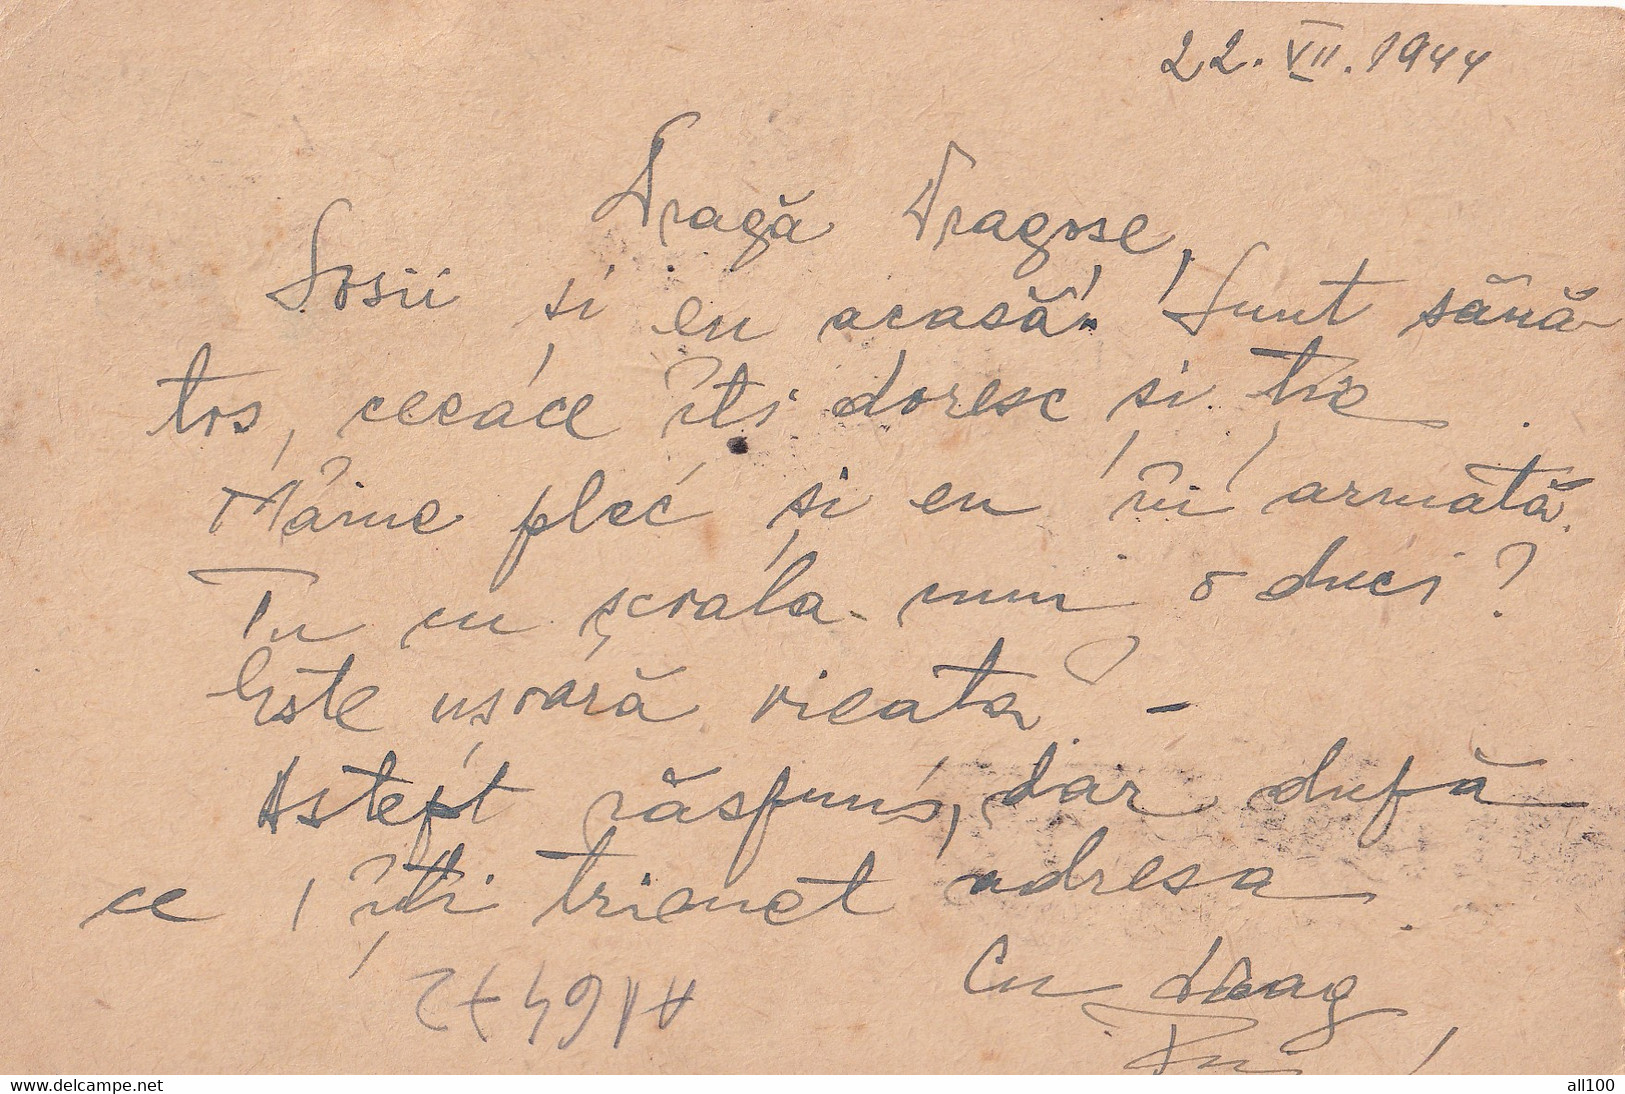 22. VII. 1944
Dragă Dragose,
Sosii si eu acasă. Sunt sănă-
tos, ceeace îti doresc si tie.
Mâine plec si eu în armată.
Tu cu școala cum o duci?
Este usoară vieata? -
Astept răspuns, dar după
ce îti trimet adresa.
Cu drag
Pui
A164 72
www.delcampe.net
all100